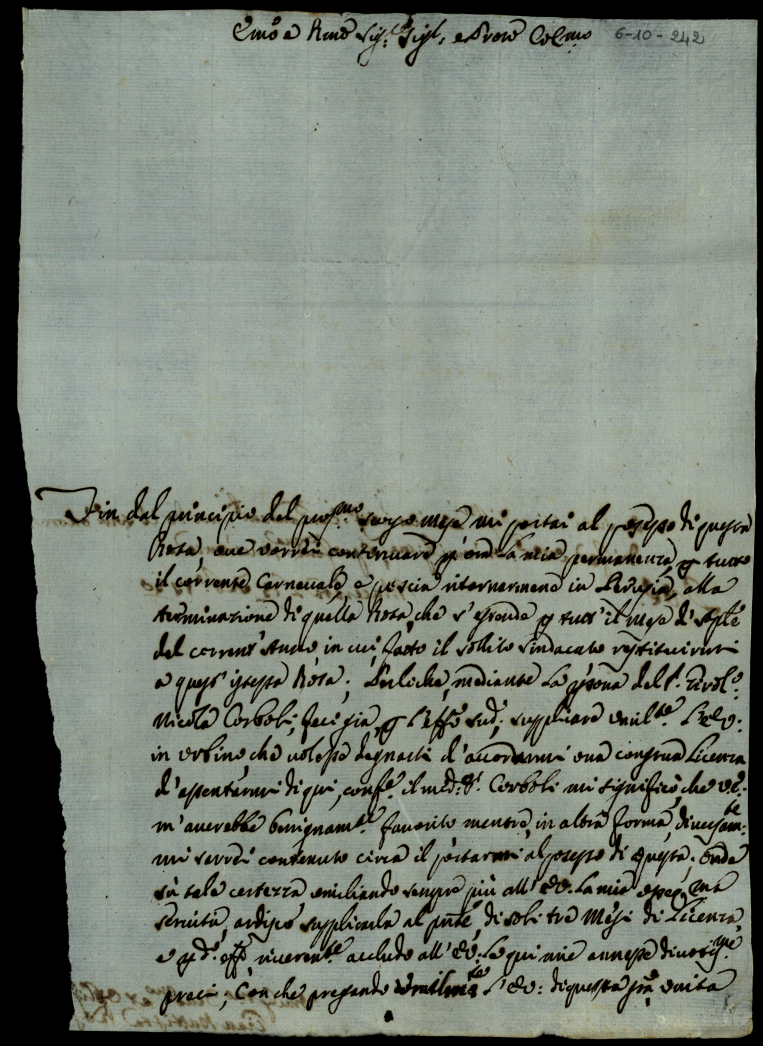 Emo e Rmo Sig.r Sig.r, e Prone Colmo 6-10-242
Fin dal principio del pross.mo scorso mese mi portai al possesso di questa
Rota, ove dovrei continuare p ora la mia permanenza p tutto
il corrente Carnevale, e poscia ritornarmene in Perugia, alla
terminazione di quella Rota, che s'estende p tutt'il mese di 
del corrent'Anno in cui, fatto il solito sindacato restituirmi
a quest'istessa Rota; Perloche, mediante la psona del S.
Nicola Corboli, feci già, p l'effo sud.o, supplicare umilte. l'E.V.:
in Urbino che volesse degnarsi d'accordarmi una congrua Licenza
d'assentarmi di qui, confe. il med.o S.r Corboli mi significò, che V.E.
m'averebbe benignam.te favorito mentre, in altra forma, diversam.te
mi sarei contenuto circa il portarmi al possesso di questa; Onde
sù tale certezza, umiliando sempre più all'E.V. la mia ossequma
servitù, ardisco supplicarla al pnte, di soli tre Mesi di Licenza,
e p d.o effo riverente. accludo all'E.V. le qui mie annesse divotissme
preci, Con che pregando umilmte l'E.V.: di questa grã, unita